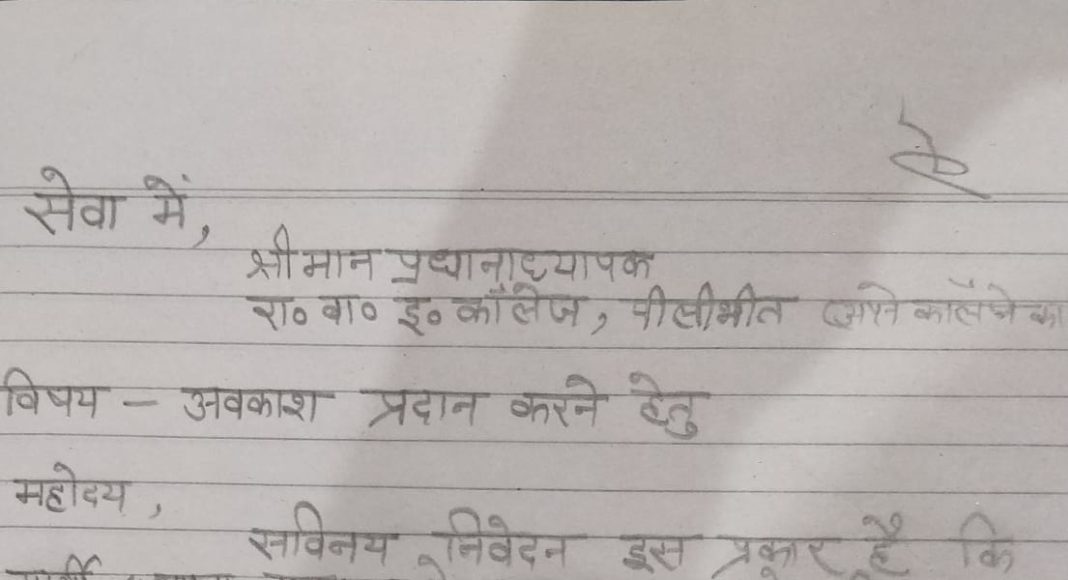 सेवा में,
श्रीमान प्रधानाध्यापक
रा० बा० इ० कॉलेज, पीलीभीत
विषय - अवकाश प्रदान करने हेतु
महोदय,
सविनय निवेदन इस प्रकार है कि